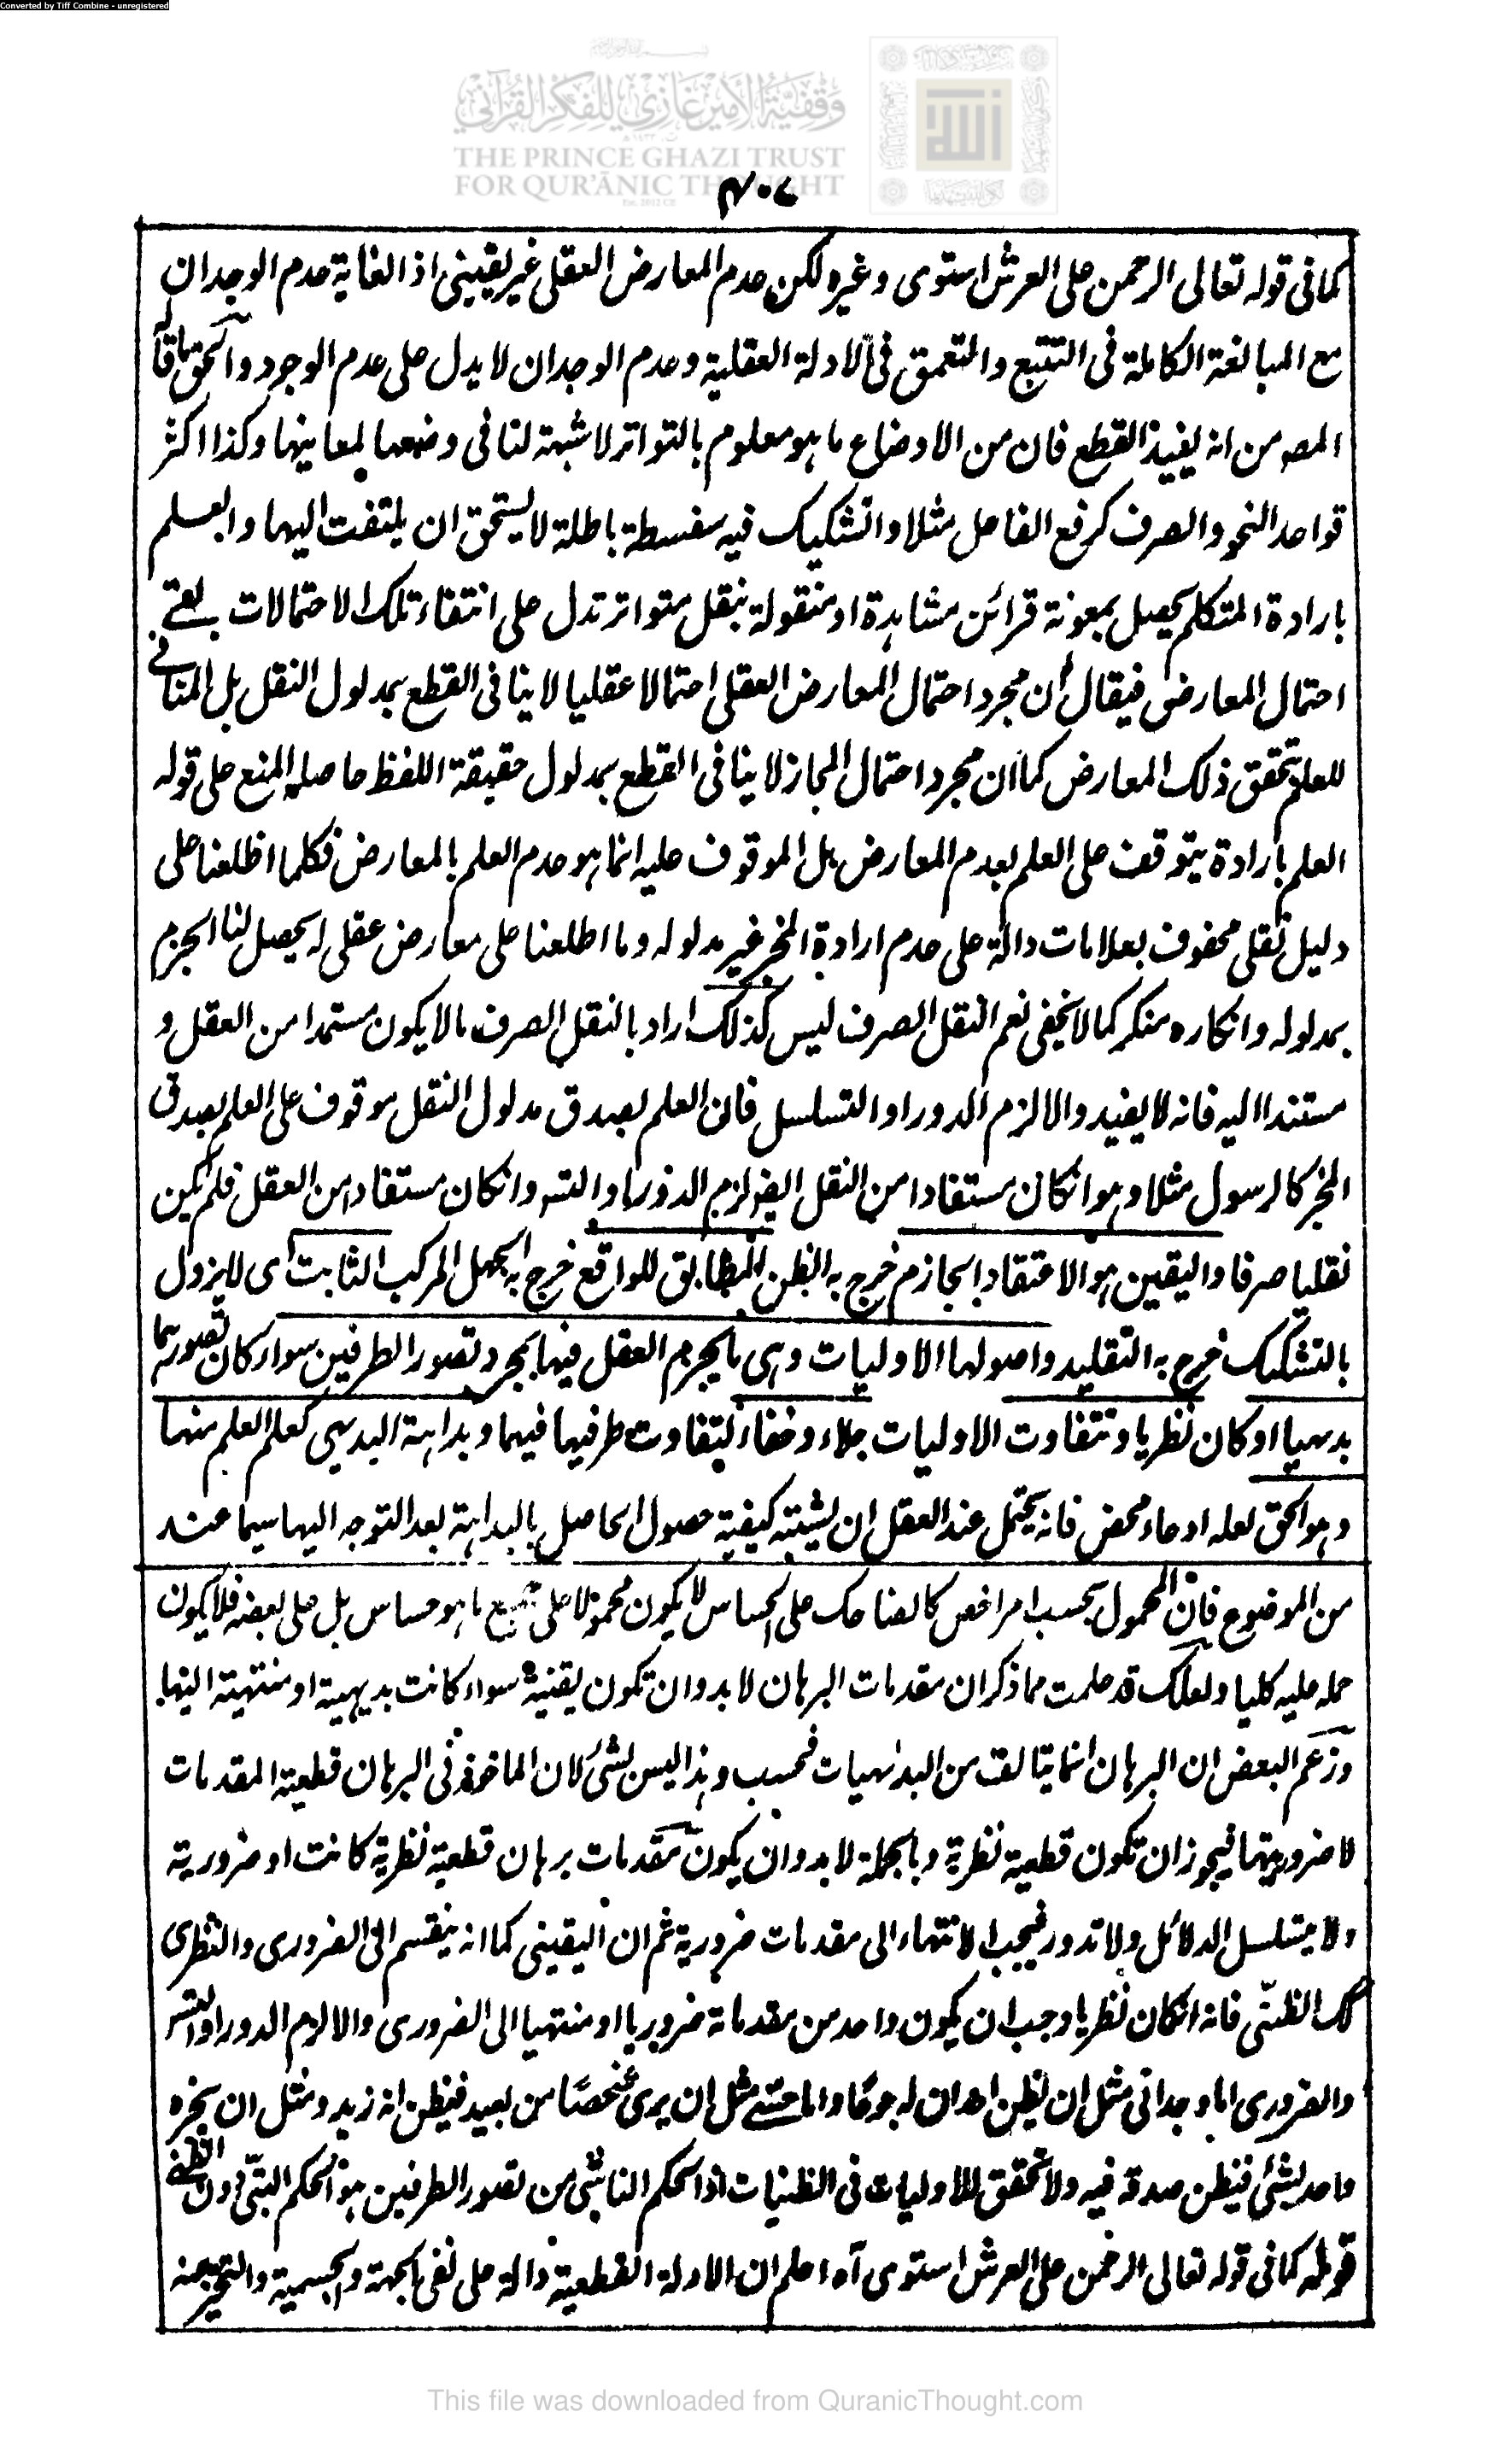 Converted by Tiff Combine - unregistered
وقفية الأمير غازي للفكر القرآني
THE PRINCE GHAZI TRUST
FOR QUR'ĀNIC THOUGHT
٤٠٧
كما فى قوله تعالى الرحمن على العرش استوى وغيره لكن عدم المعارض العقلى غير يقينى اذ الغاية عدم الوجدان
مع المبالغة الكاملة فى التتبع والتعمق فى الادلة العقلية وعدم الوجدان لا يدل على عدم الوجود والحق ما قاله
المصه من انه يفيد القطع فان من الاوضاع ما هو معلوم بالتواتر لا شبهة لنا فى وضعها لمعانيها وكذا اكثر
قواعد النحو والصرف كرفع الفاعل مثلا والتشكيك فيه سفسطة باطلة لا يستحق ان يلتفت اليها والعلم
بارادة المتكلم يحصل بمعونة قرائن مشاهدة او منقولة بنقل متواتر تدل على انتفاء تلك الاحتمالات بقى
احتمال المعارض فيقال ان مجرد احتمال المعارض العقلى احتمالا عقليا لا ينافى القطع بمدلول النقل بل المنافى
للعلم تحقق ذلك المعارض كما ان مجرد احتمال المجاز لا ينافى القطع بمدلول حقيقة اللفظ حاصله المنع على قوله
العلم بارادة يتوقف على العلم بعدم المعارض بل الموقوف عليه انما هو عدم العلم بالمعارض فكلما اطلعنا على
دليل نقلى محفوف بعلامات دالة على عدم ارادة المخبر غير مدلوله وما اطلعنا على معارض عقلى له يحصل لنا الجزم
بمدلوله وانكاره منكر كما لا يخفى نعم النقل الصرف ليس كذلك اراد بالنقل الصرف ما لا يكون مستمدا من العقل و
مستندا اليه فانه لا يفيد والا لزم الدور او التسلسل فان العلم بصدق مدلول النقل موقوف على العلم بصدق
المخبر كالرسول مثلا وهو انكان مستفادا من النقل ايضا لزم الدور او التسه وانكان مستفادا من العقل فلم يكن
نقليا صرفا واليقين هو الاعتقاد الجازم خرج به الظن المطابق للواقع خرج به الجهل المركب الثابت اى لا يزول
بالتشكيك خرج به التقليد واصولها الاوليات وهى ما يجزم العقل فيها بمجرد تصور الطرفين سواء كان تصورهما
بديهيا او كان نظريا وتتفاوت الاوليات جلاء وخفاء لتفاوت طرفيها فيهما وبداهة البديهى كعلم العلم منها
وهو الحق لعله ادعاء محض فانه يحتمل عند العقل ان يشتبه كيفية حصول الحاصل بالبداهة بعد التوجه اليها سيما عند
من الموضوع فان المحمول بحسب امر اخص كالضاحك على الحساس لا يكون محمولا على جميع ما هو حساس بل على بعضه فلا يكون
حمله عليه كليا ولعلك قد علمت مما ذكر ان مقدمات البرهان لا بد وان تكون يقينية سواء كانت بديهية او منتهية اليها
وزعم البعض ان البرهان انما يتالف من البديهيات فحسب وهذا ليس بشئ لان الماخوذ فى البرهان قطعية المقدمات
لا ضروريتها فيجوز ان تكون قطعية نظرية وبالجملة لا بد وان يكون مقدمات برهان قطعية نظرية كانت او ضرورية
ولا يتسلسل الدلائل ولا تدور فيجب الانتهاء الى مقدمات ضرورية ثم ان اليقينى كما انه ينقسم الى الضرورى والنظرى
كك الظنى فانه انكان نظريا وجب ان يكون واحد من مقدماته ضروريا او منتهيا الى الضرورى والا لزم الدور او التسه
والضرورى اما وجدانى مثل ان يظن احد ان له جوعا واما حسى مثل ان يرى شخصا من بعيد فيظن انه زيد ومثل ان يخبره
واحد بشئ فيظن صدقه فيه ولا تحقق للاوليات فى الظنيات اذ الحكم الناشئ من تصور الطرفين هو الحكم البتى دون الظنى
قوله كما فى قوله تعالى الرحمن على العرش استوى آه اعلم ان الادلة القطعية دالة على نفى الجهة والجسمية والتحيز عنه
This file was downloaded from QuranicThought.com